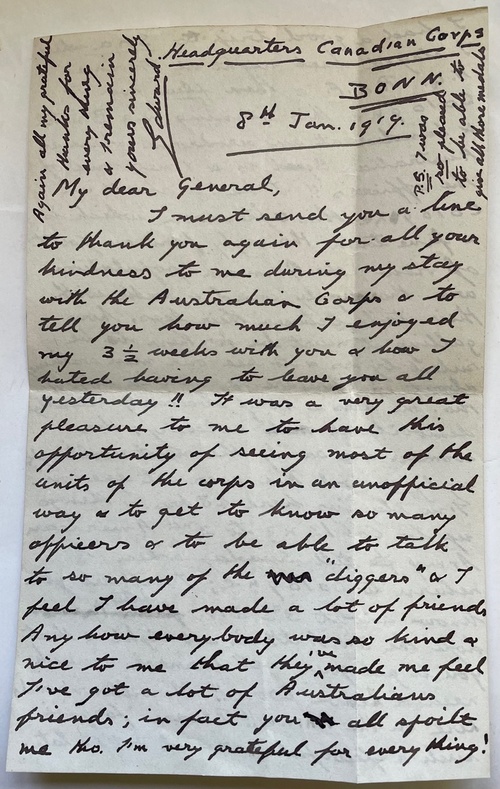 Headquarters Canadian Corps
BONN.
8th Jan. 1919.
My dear General,
I must send you a line
to thank you again for all your
kindness to me during my stay
with the Australian Corps & to
tell you how much I enjoyed
my 3½ weeks with you & how I
hated having to leave you all
yesterday!! It was a very great
pleasure to me to have this
opportunity of seeing most of the
units of the corps in an unofficial
way & to get to know so many
officers & to be able to talk
to so many of the "diggers" & I
feel I have made a lot of friends
Anyhow everybody was so kind &
nice to me that they've made me feel
I've got a lot of Australians
friends; in fact you all spoilt
me tho. I'm very grateful for everything!
Again all my grateful
thanks for
every thing
& I remain
yours sincerely
Edward
P.S. I was
so pleased
to be able to
give all those medals